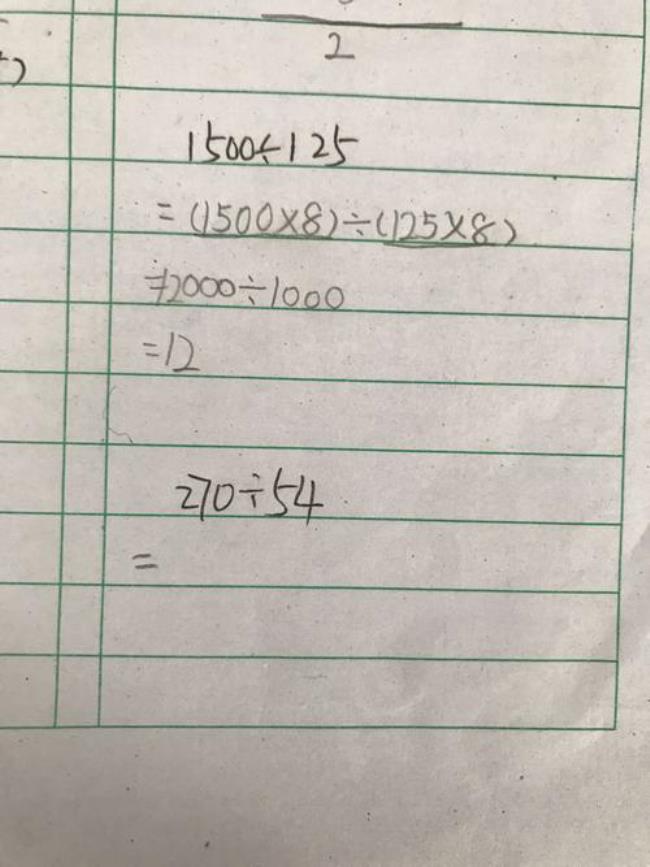 2
1500÷125
=(1500×8)÷(125×8)
=12000÷1000
=12
270÷54
=